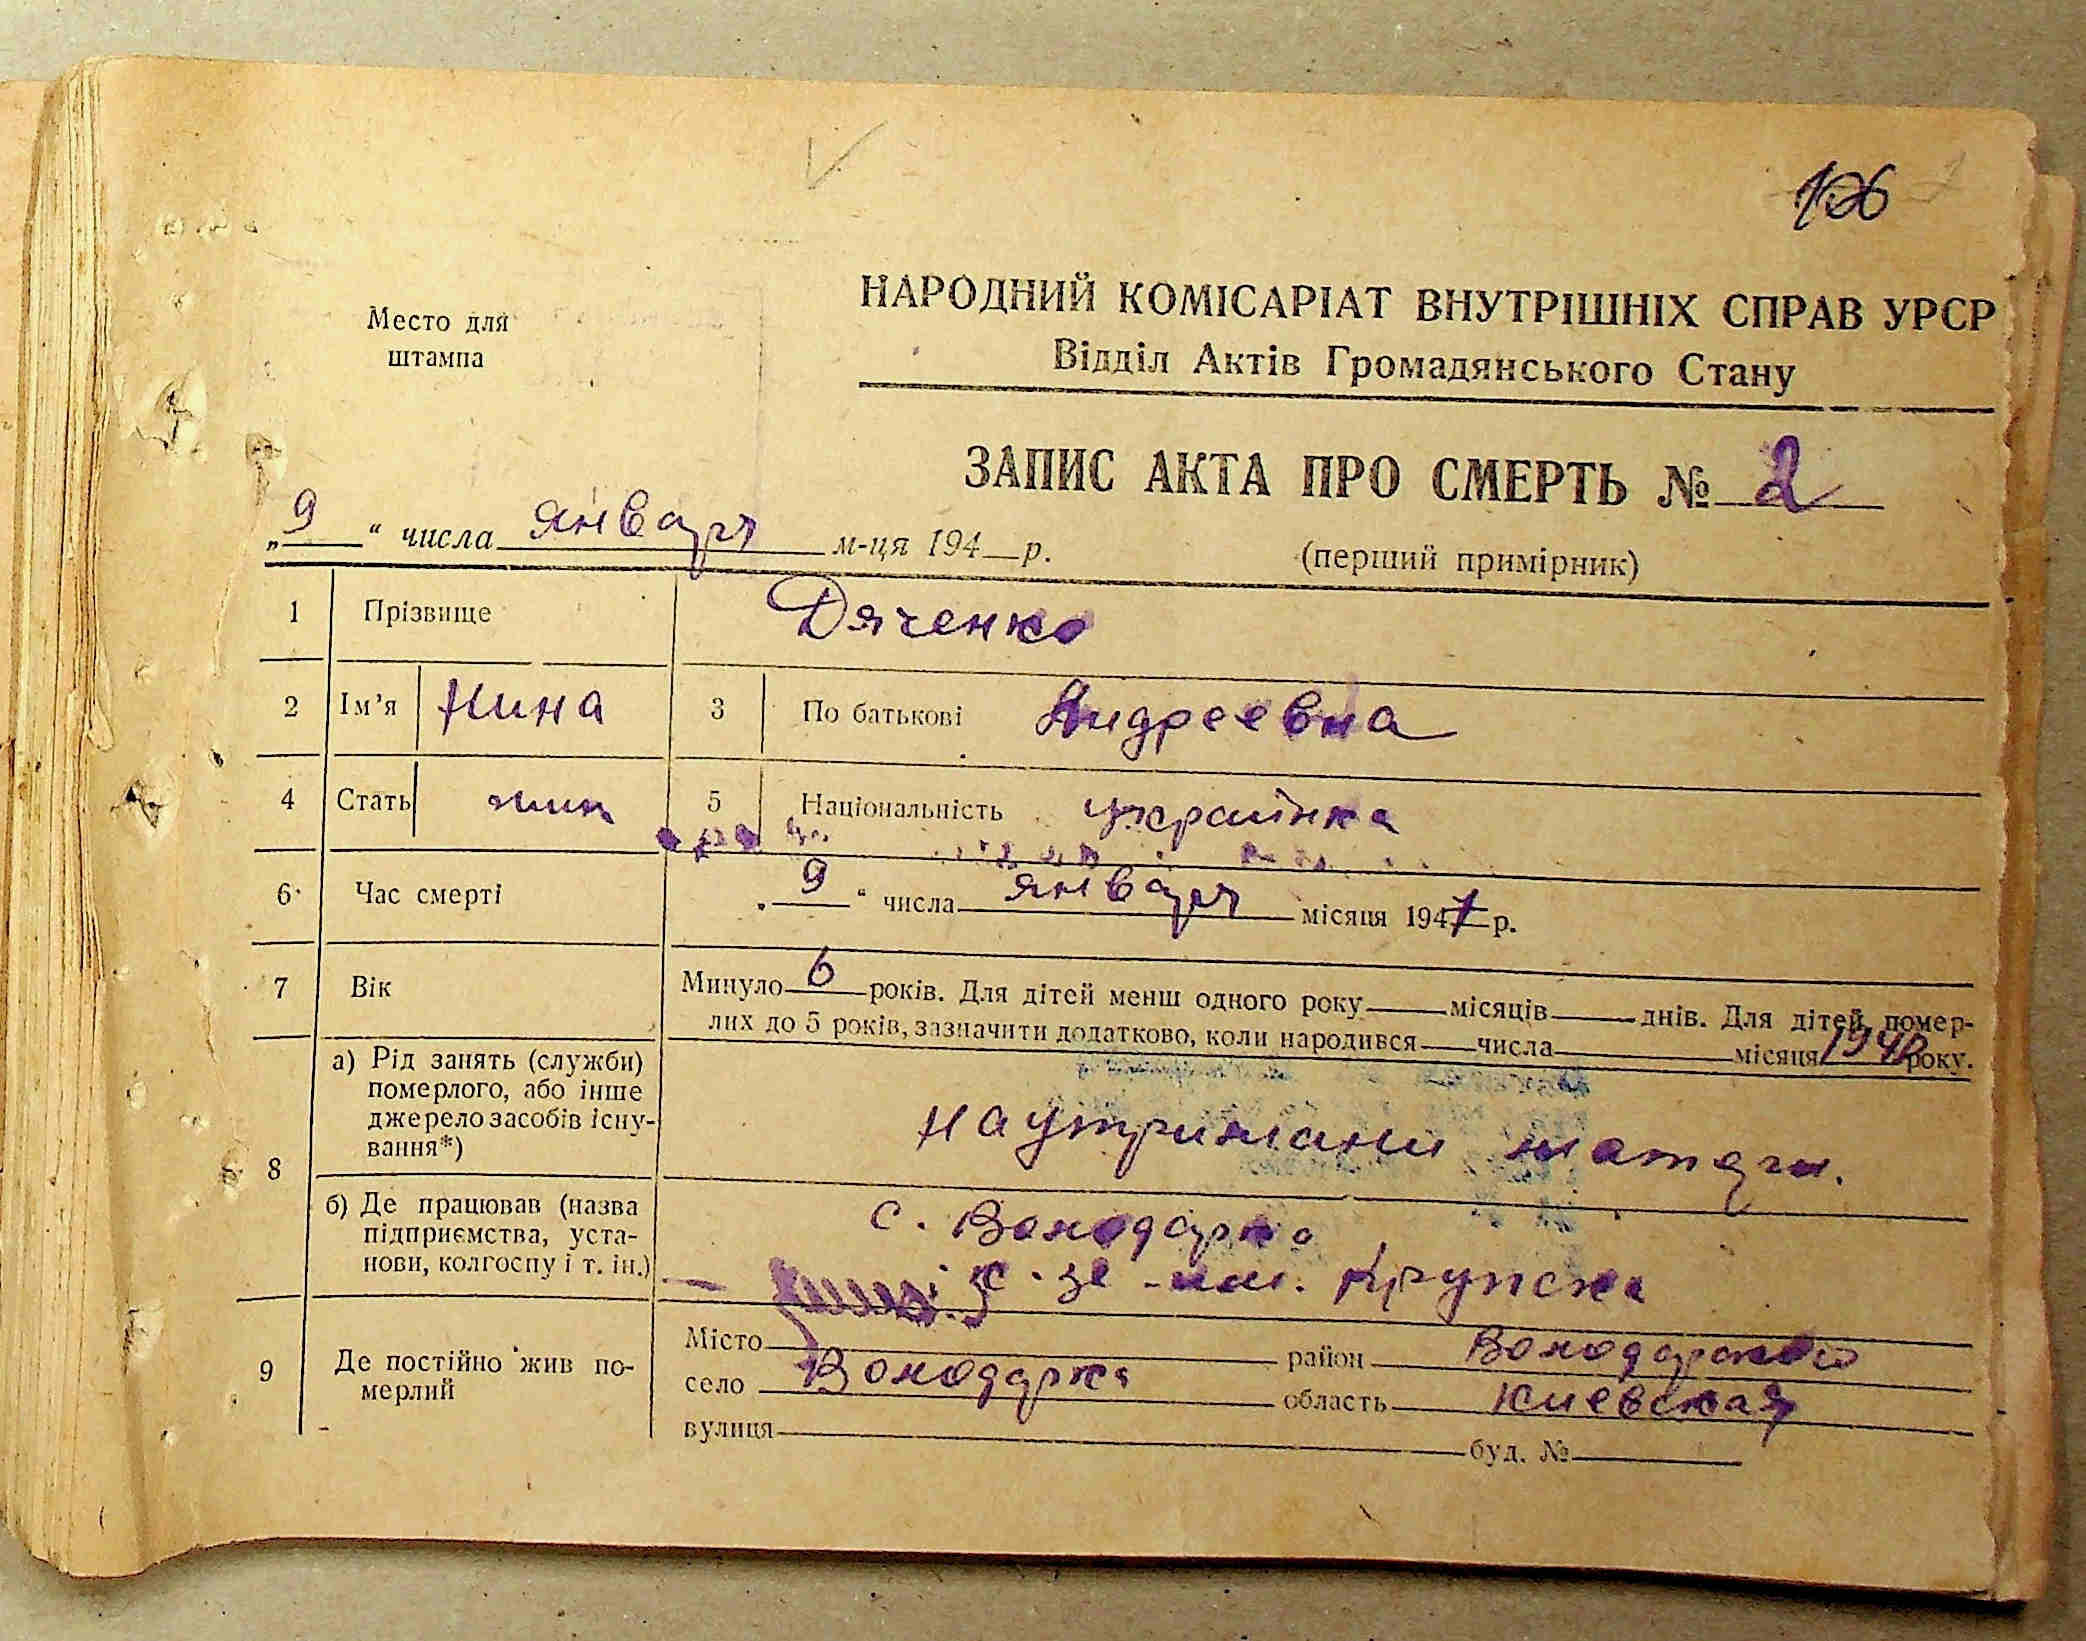 106
Место для
штампа
НАРОДНИЙ КОМІСАРІАТ ВНУТРІШНІХ СПРАВ УРСР
Відділ Актів Громадянського Стану
ЗАПИС АКТА ПРО СМЕРТЬ № 2
„9“ числа января м-ця 194 р.
(перший примірник)
1 Прізвище Дяченко
2 Ім’я Нина 3 По батькові Андреевна
4 Стать жин 5 Національність українка
6 Час смерті „9“ числа января місяця 1947 р.
7 Вік Минуло 6 років. Для дітей менш одного року місяців днів. Для дітей, помер-
лих до 5 років, зазначити додатково, коли народився числа місяця 1940 року.
8 а) Рід занять (служби)
померлого, або інше
джерело засобів існу-
вання*)
на утримани матери.
б) Де працював (назва
підприємства, уста-
нови, колгоспу і т. ін.)
с. Володарка
к-за им. Крупска
9 Де постійно жив по-
мерлий
Місто район Володарского
село Володарка область Киевская
вулиця буд. №